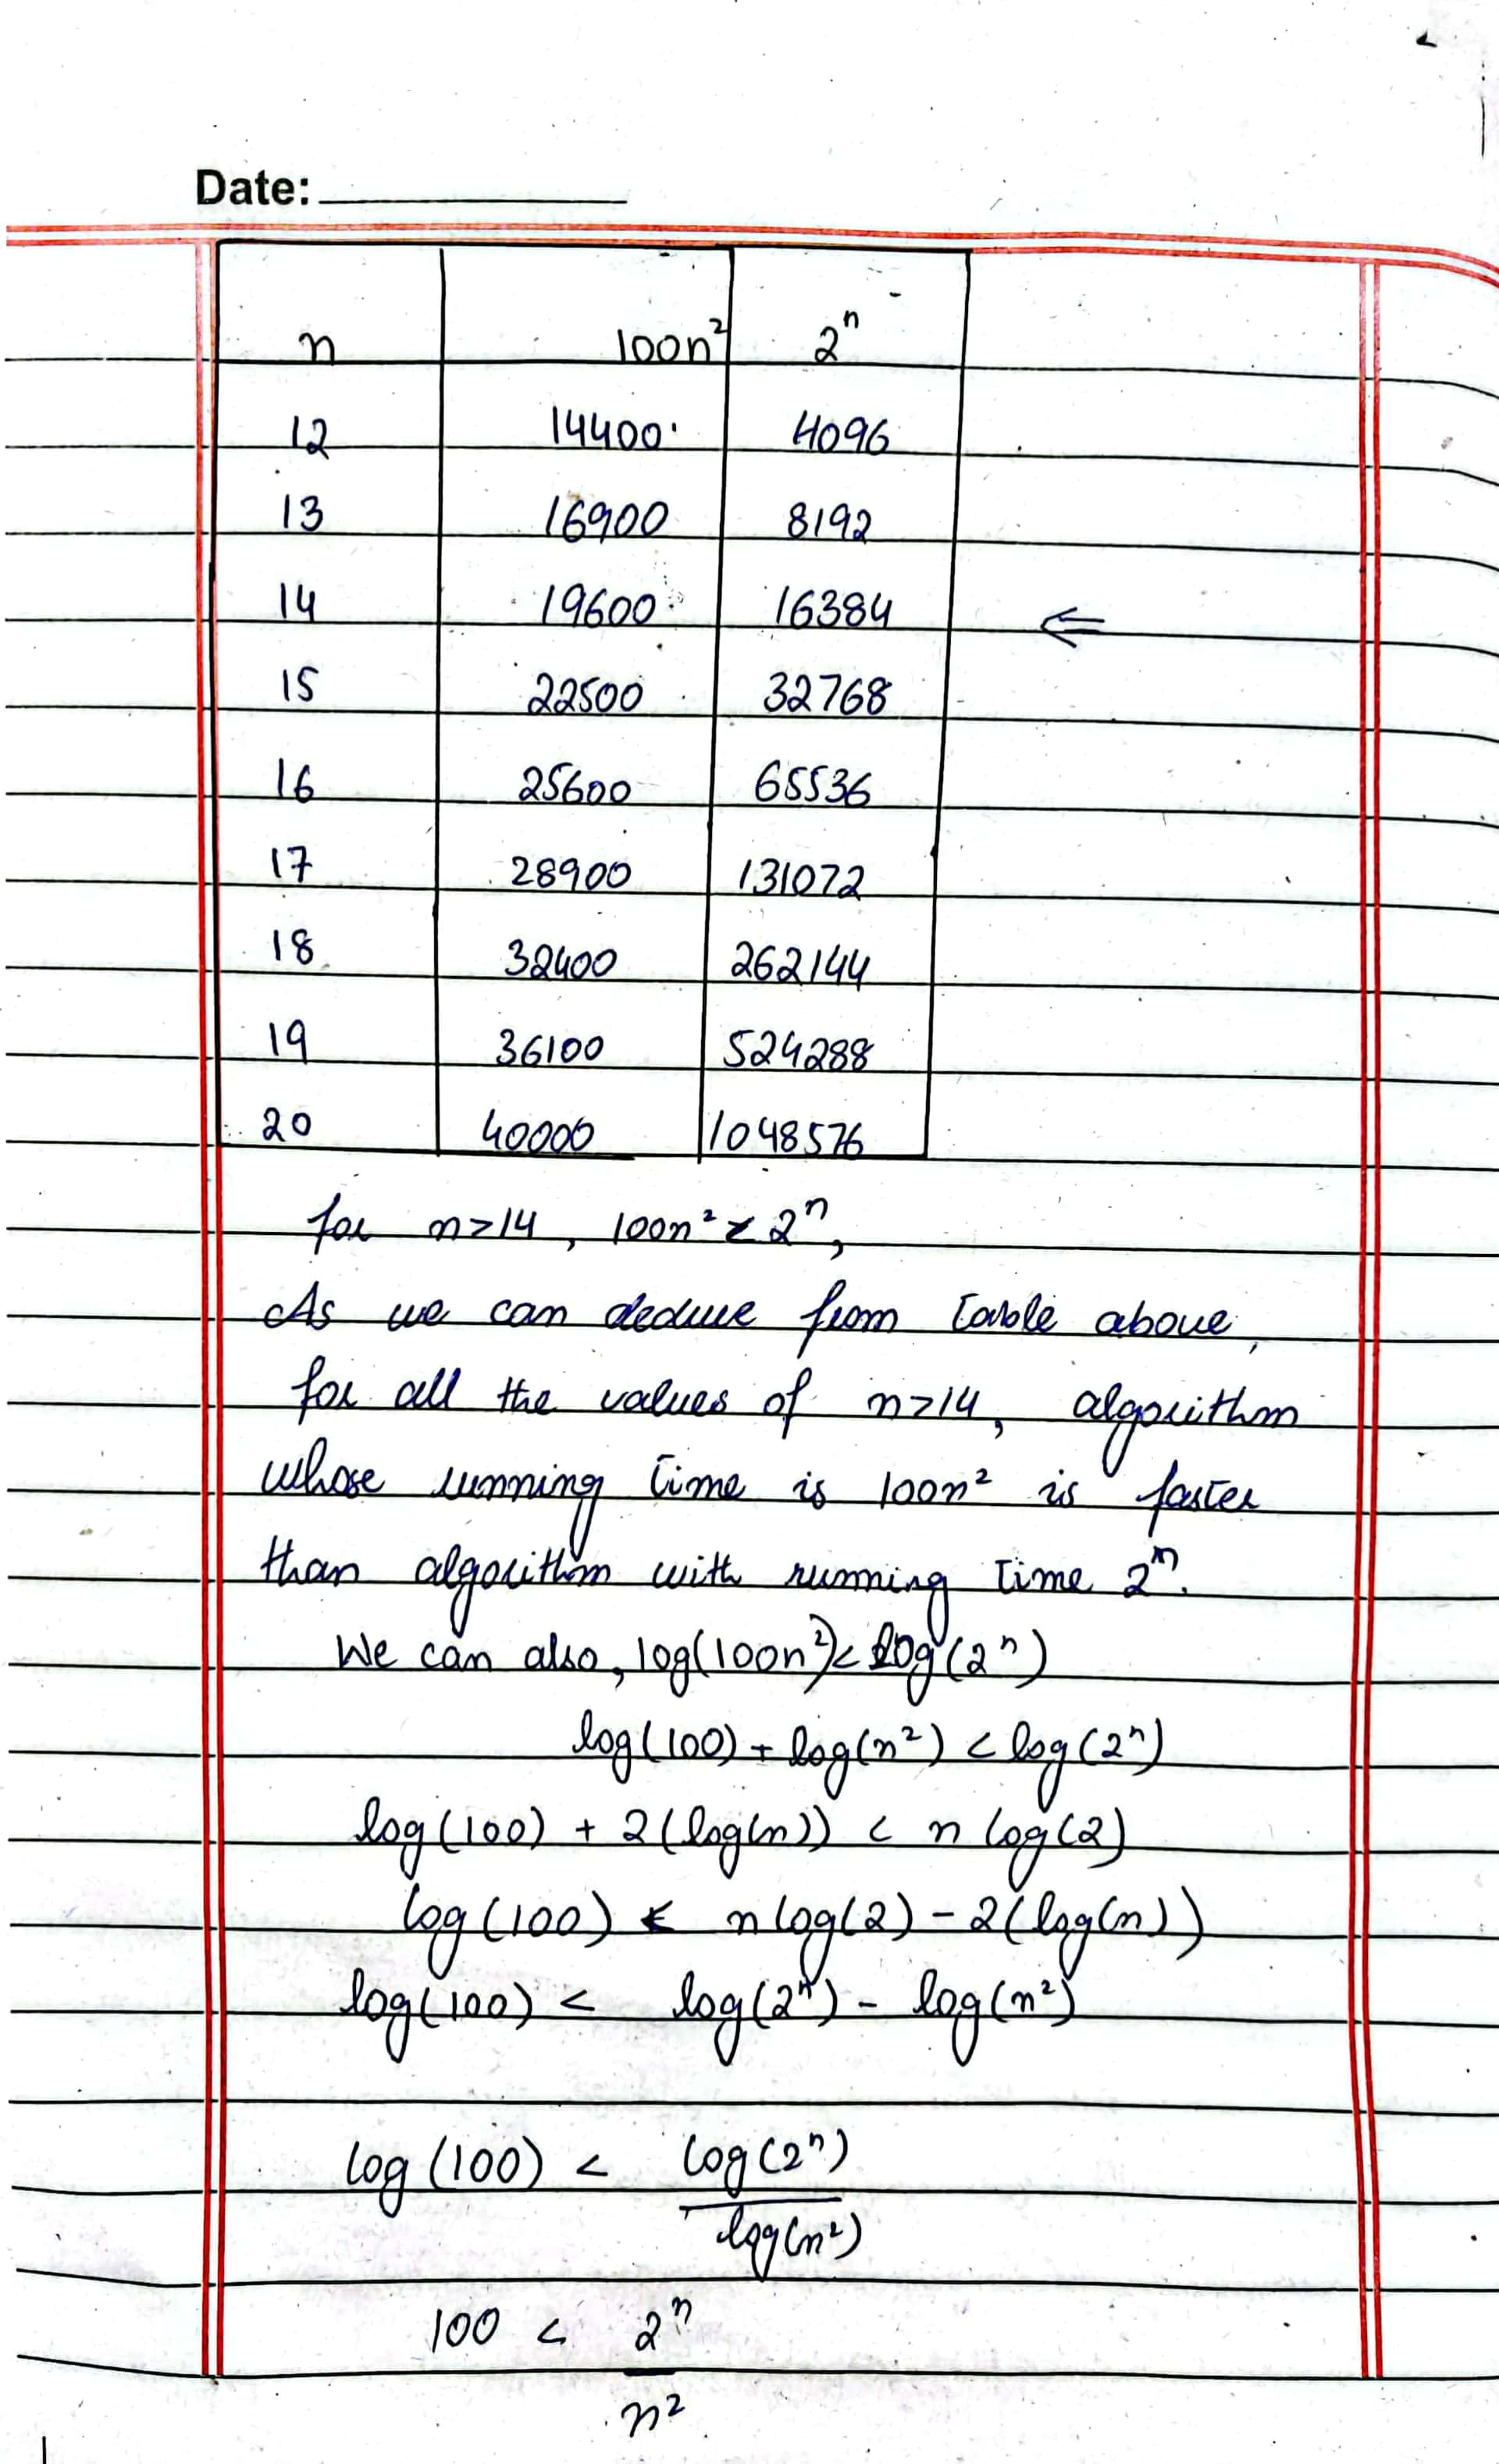 Date:
n 100n² 2ⁿ
12 14400 4096
13 16900 8192
14 19600 16384 ⇐
15 22500 32768
16 25600 65536
17 28900 131072
18 32400 262144
19 36100 524288
20 40000 1048576
for n>14, 100n² < 2ⁿ,
As we can deduce from table above,
for all the values of n>14, algorithm
whose running time is 100n² is faster
than algorithm with running time 2ⁿ.
We can also, log(100n²) < log(2ⁿ)
log(100) + log(n²) < log(2ⁿ)
log(100) + 2(log(n)) < n log(2)
log(100) < n log(2) - 2(log(n))
log(100) < log(2ⁿ) - log(n²)
log(100) < log(2ⁿ)
log(n²)
100 < 2ⁿ
n²